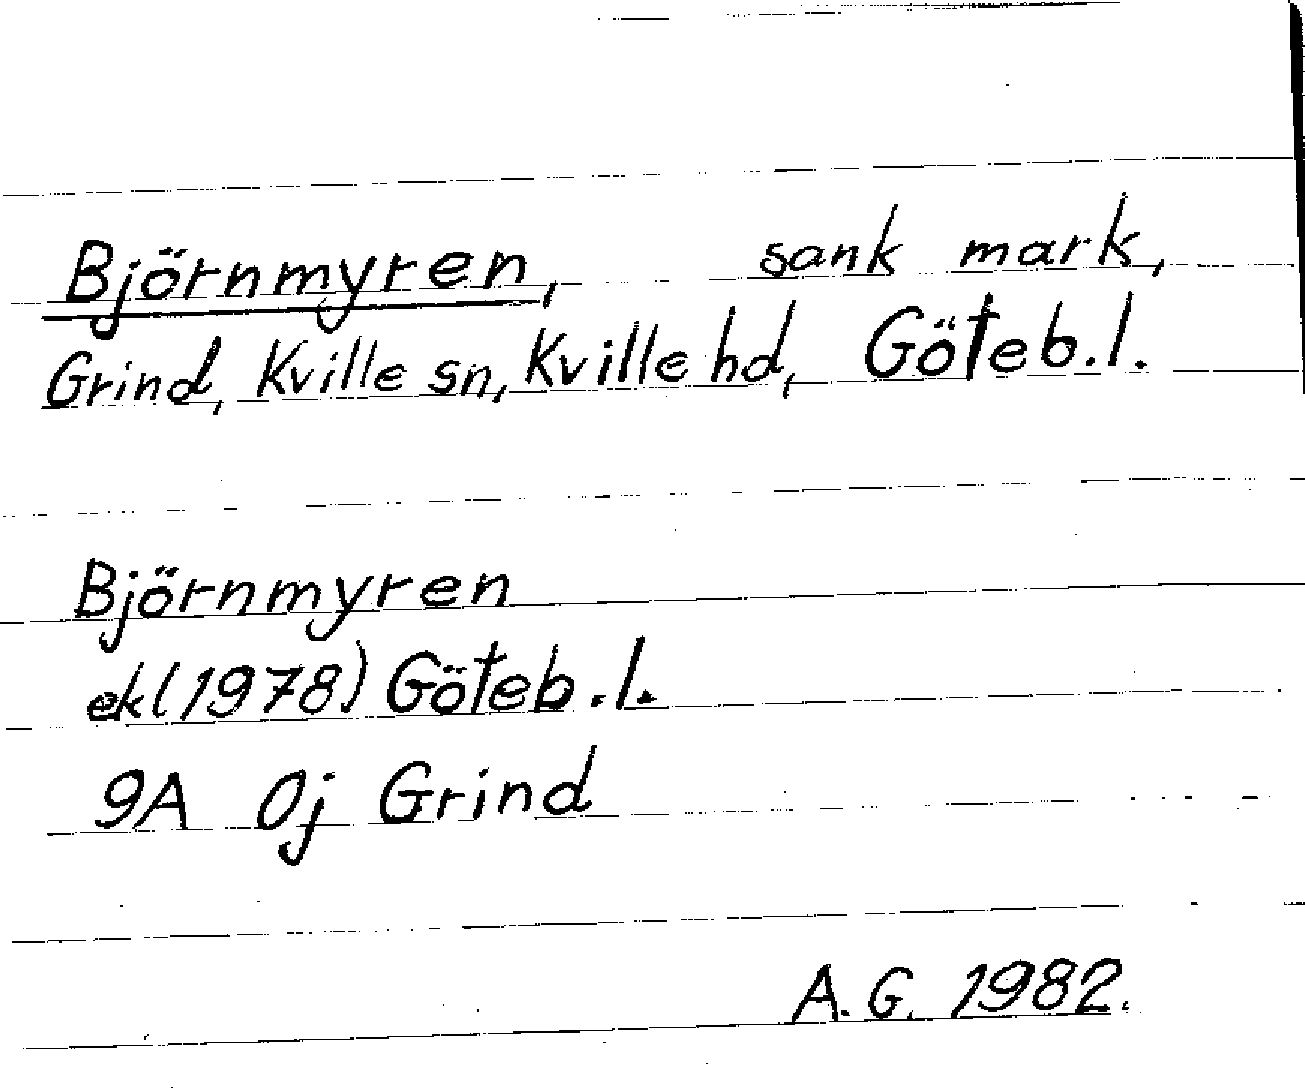 Björnmyren, sank mark,
Grind, Kville sn, Kville hd, Göteb.l.
Björnmyren
ekl(1978) Göteb.l.
9A 0j Grind
A.G. 1982.